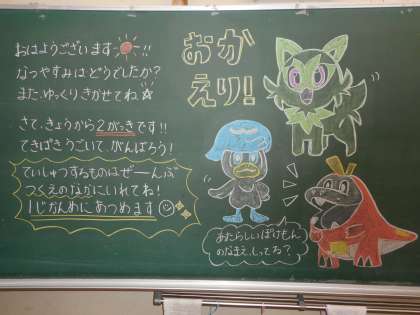 おはようございます!!
なつやすみはどうでしたか?
また、ゆっくりきかせてね
さて、きょうから2がっきです!!
てきぱきうごいて、がんばろう!
ていしゅつするものはぜーんぶ
つくえのなかにいれてね!
1じかんめにあつめます
おか
えり!
あたらしいぽけもん
のなまえ、しってる?